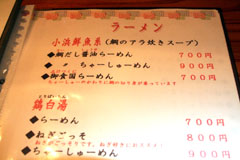 ラーメン
小浜鮮魚系(鯛のアラ炊きスープ)
◆鯛だし醤油らーめん 700円
◆ 〃 ちゃーしゅーめん 900円
◆御食国らーめん 700円
鶏白湯
◆らーめん 700円
◆ねぎごっそ 800円
◆ちゃーしゅーめん 900円